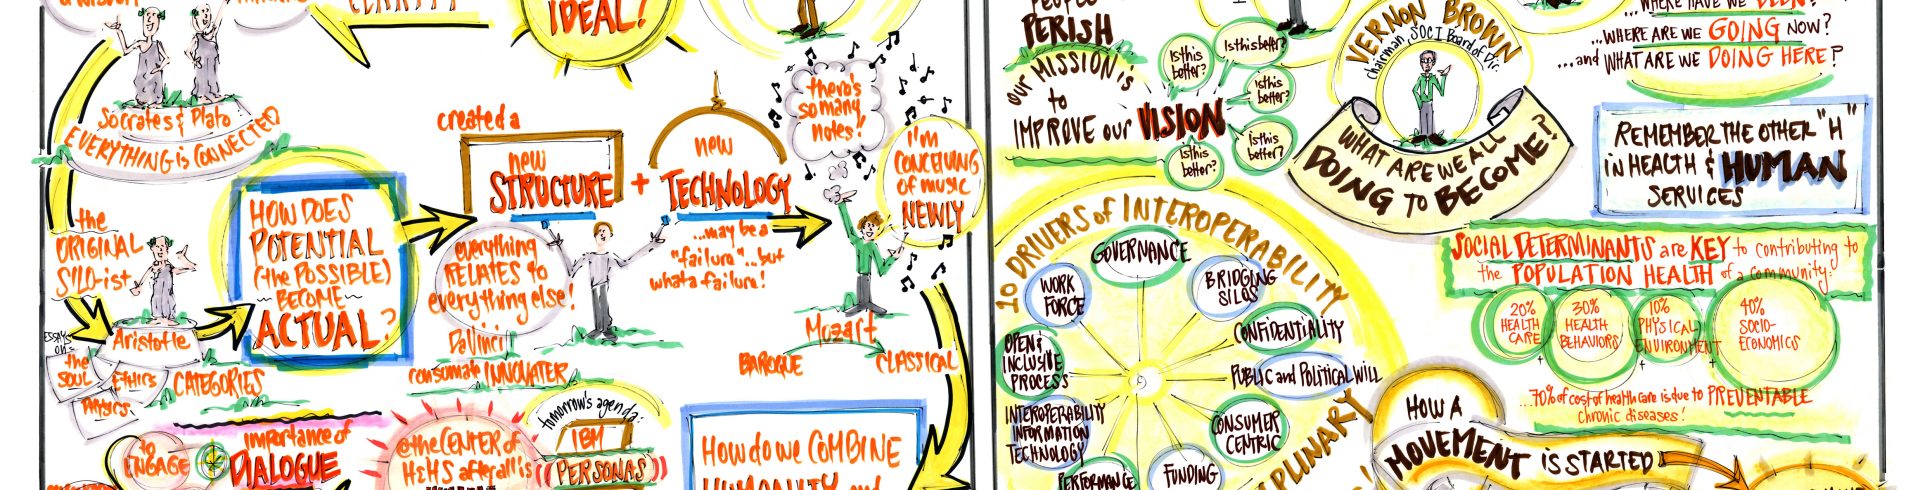 CLARITY
IDEAL!
Socrates & Plato
EVERYTHING is CONNECTED
the
ORIGINAL
SILO-ist
Aristotle
ESSAYS
ON=
the
SOUL
Ethics
CATEGORIES
HOW DOES
POTENTIAL
(the POSSIBLE)
BECOME
ACTUAL?
created a
new
STRUCTURE
+
new
TECHNOLOGY
everything
RELATES to
everything else!
DaVinci
consumate INNOVATER
...may be a
"failure"...but
what a failure!
there's
so many
notes!
I'm
CONCEIVING
of music
NEWLY
Mozart
BAROQUE
CLASSICAL
to
ENGAGE
importance of
DIALOGUE
@the CENTER of
H&HS after all is
tomorrow's agenda:
IBM
((PERSONAS))
How do we COMBINE
HUMANITY and
PEOPLE
PERISH
OUR MISSION is
to
IMPROVE our VISION
Is this
better?
Is this better?
Is this
better?
Is this
better?
Is this
better?
VERNON BROWN
chairman, SOCI Board of Dir.
WHAT ARE WE ALL
DOING TO BECOME?
...WHERE HAVE WE BEEN?
...WHERE ARE WE GOING NOW?
...and WHAT ARE WE DOING HERE?
REMEMBER THE OTHER "H"
IN HEALTH & HUMAN
SERVICES
SOCIAL DETERMINANTS are KEY to contributing to
the POPULATION HEALTH of a community:
20%
HEALTH
CARE
+
30%
HEALTH
BEHAVIORS
+
10%
PHYSICAL
ENVIRONMENT
+
40%
SOCIO-
ECONOMICS
...70% of cost of health care is due to PREVENTABLE
chronic diseases!
10 DRIVERS of INTEROPERABILITY
GOVERNANCE
BRIDGING
SILOS
CONFIDENTIALITY
PUBLIC and POLITICAL WILL
CONSUMER
CENTRIC
FUNDING
PERFORMANCE
INTEROPERABILITY
INFORMATION
TECHNOLOGY
OPEN &
INCLUSIVE
PROCESS
WORK
FORCE
HOW A
MOVEMENT IS STARTED